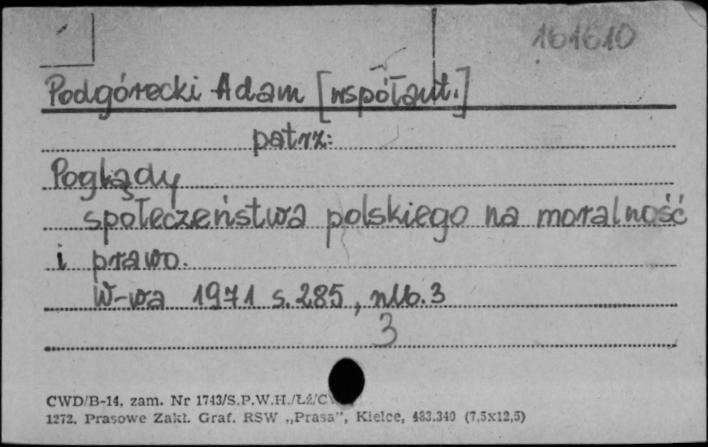 161610
Podgórecki Adam [współaut.]
patrz:
Poglądy
społeczeństwa polskiego na moralność
i prawo.
W-wa 1971 s. 285, nlb. 3
3
CWD/B-14, zam. Nr 1743/S.P.W.H./Łź/C
1272. Prasowe Zakł. Graf. RSW „Prasa”, Kielce, 483.340 (7,5x12,5)